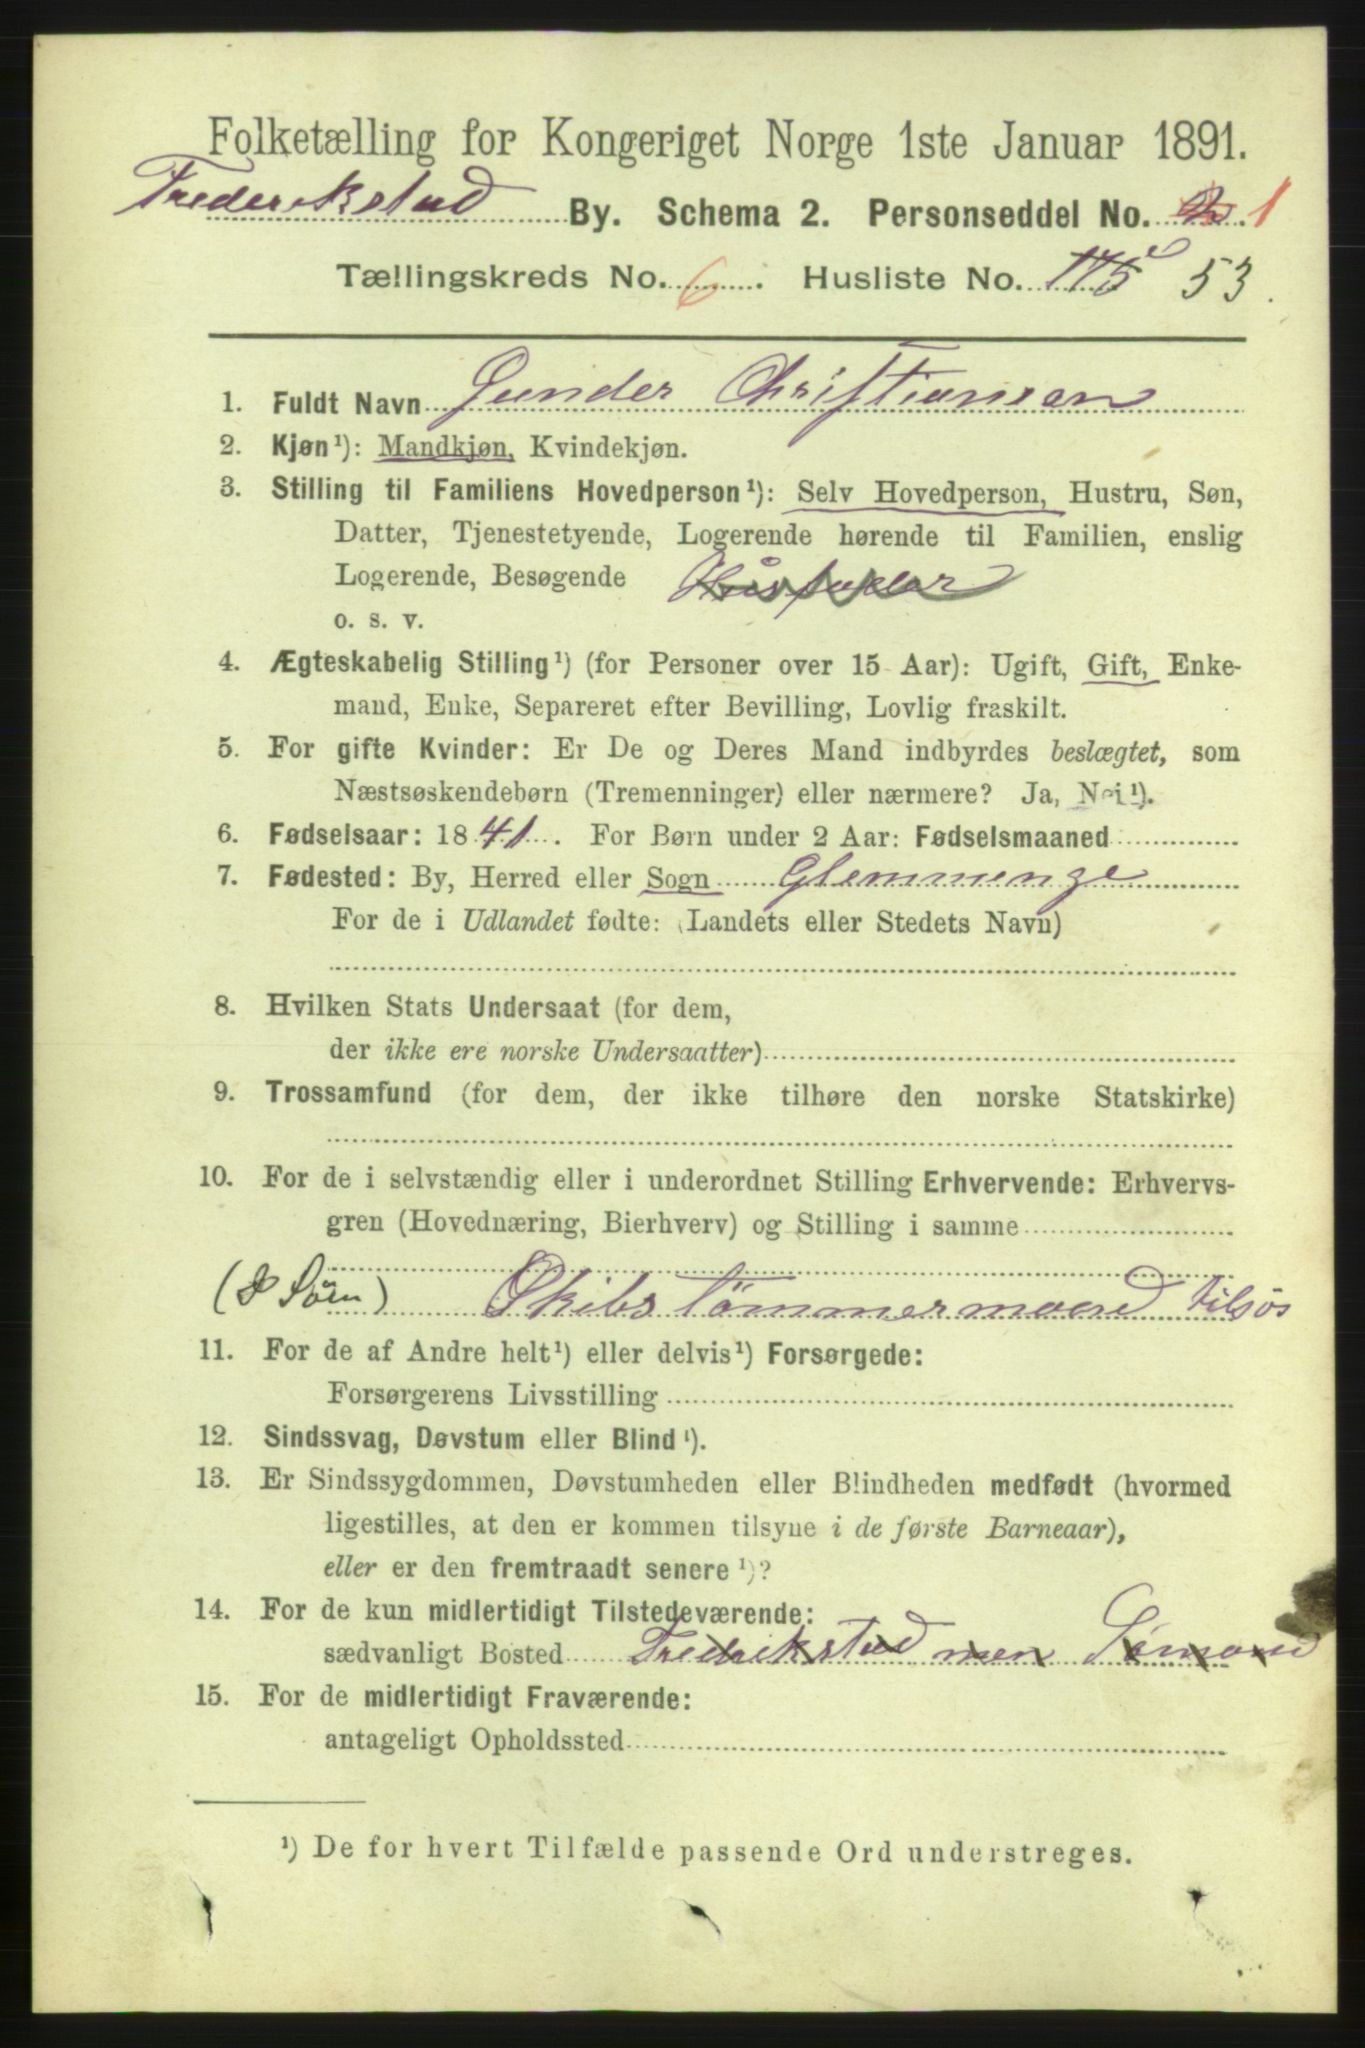 Folketælling for Kongeriget Norge 1ste Januar 1891.
Frederikstad By. Schema 2. Personseddel No. 2 1
Tællingskreds No. 6. Husliste No. 175 53.
1. Fuldt Navn Gunder Christiansen
2. Kjøn¹): Mandkjøn, Kvindekjøn.
3. Stilling til Familiens Hovedperson¹): Selv Hovedperson, Hustru, Søn,
Datter, Tjenestetyende, Logerende hørende til Familien, enslig
Logerende, Besøgende Husfader
o. s. v.
4. Ægteskabelig Stilling¹) (for Personer over 15 Aar): Ugift, Gift, Enke-
mand, Enke, Separeret efter Bevilling, Lovlig fraskilt.
5. For gifte Kvinder: Er De og Deres Mand indbyrdes beslægtet, som
Næstsøskendebørn (Tremenninger) eller nærmere? Ja, Nei¹).
6. Fødselsaar: 1841. For Børn under 2 Aar: Fødselsmaaned
7. Fødested: By, Herred eller Sogn Glemmenge
For de i Udlandet fødte: (Landets eller Stedets Navn)
8. Hvilken Stats Undersaat (for dem,
der ikke ere norske Undersaatter)
9. Trossamfund (for dem, der ikke tilhøre den norske Statskirke)
10. For de i selvstændig eller i underordnet Stilling Erhvervende: Erhvervs-
gren (Hovednæring, Bierhverv) og Stilling i samme
Skibstømmermand tilsøs
11. For de af Andre helt¹) eller delvis¹) Forsørgede:
Forsørgerens Livsstilling
12. Sindssvag, Døvstum eller Blind¹).
13. Er Sindssygdommen, Døvstumheden eller Blindheden medfødt (hvormed
ligestilles, at den er kommen tilsyne i de første Barneaar),
eller er den fremtraadt senere¹)?
14. For de kun midlertidigt Tilstedeværende:
sædvanligt Bosted Fredrikstad men Sømand
15. For de midlertidigt Fraværende:
antageligt Opholdssted
¹) De for hvert Tilfælde passende Ord understreges.